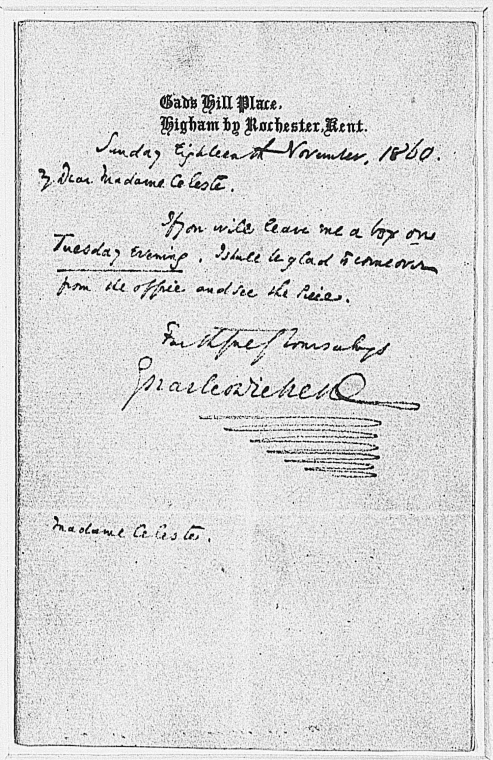 Gad's Hill Place,
Higham by Rochester, Kent.
Sunday Eighteenth November, 1860.
My Dear Madame Celeste.
If you will leave me a box on
Tuesday Evening, I shall be glad to come over
from the office and see the Piece.
Faithfully Yours always
Charles Dickens
Madame Celeste.